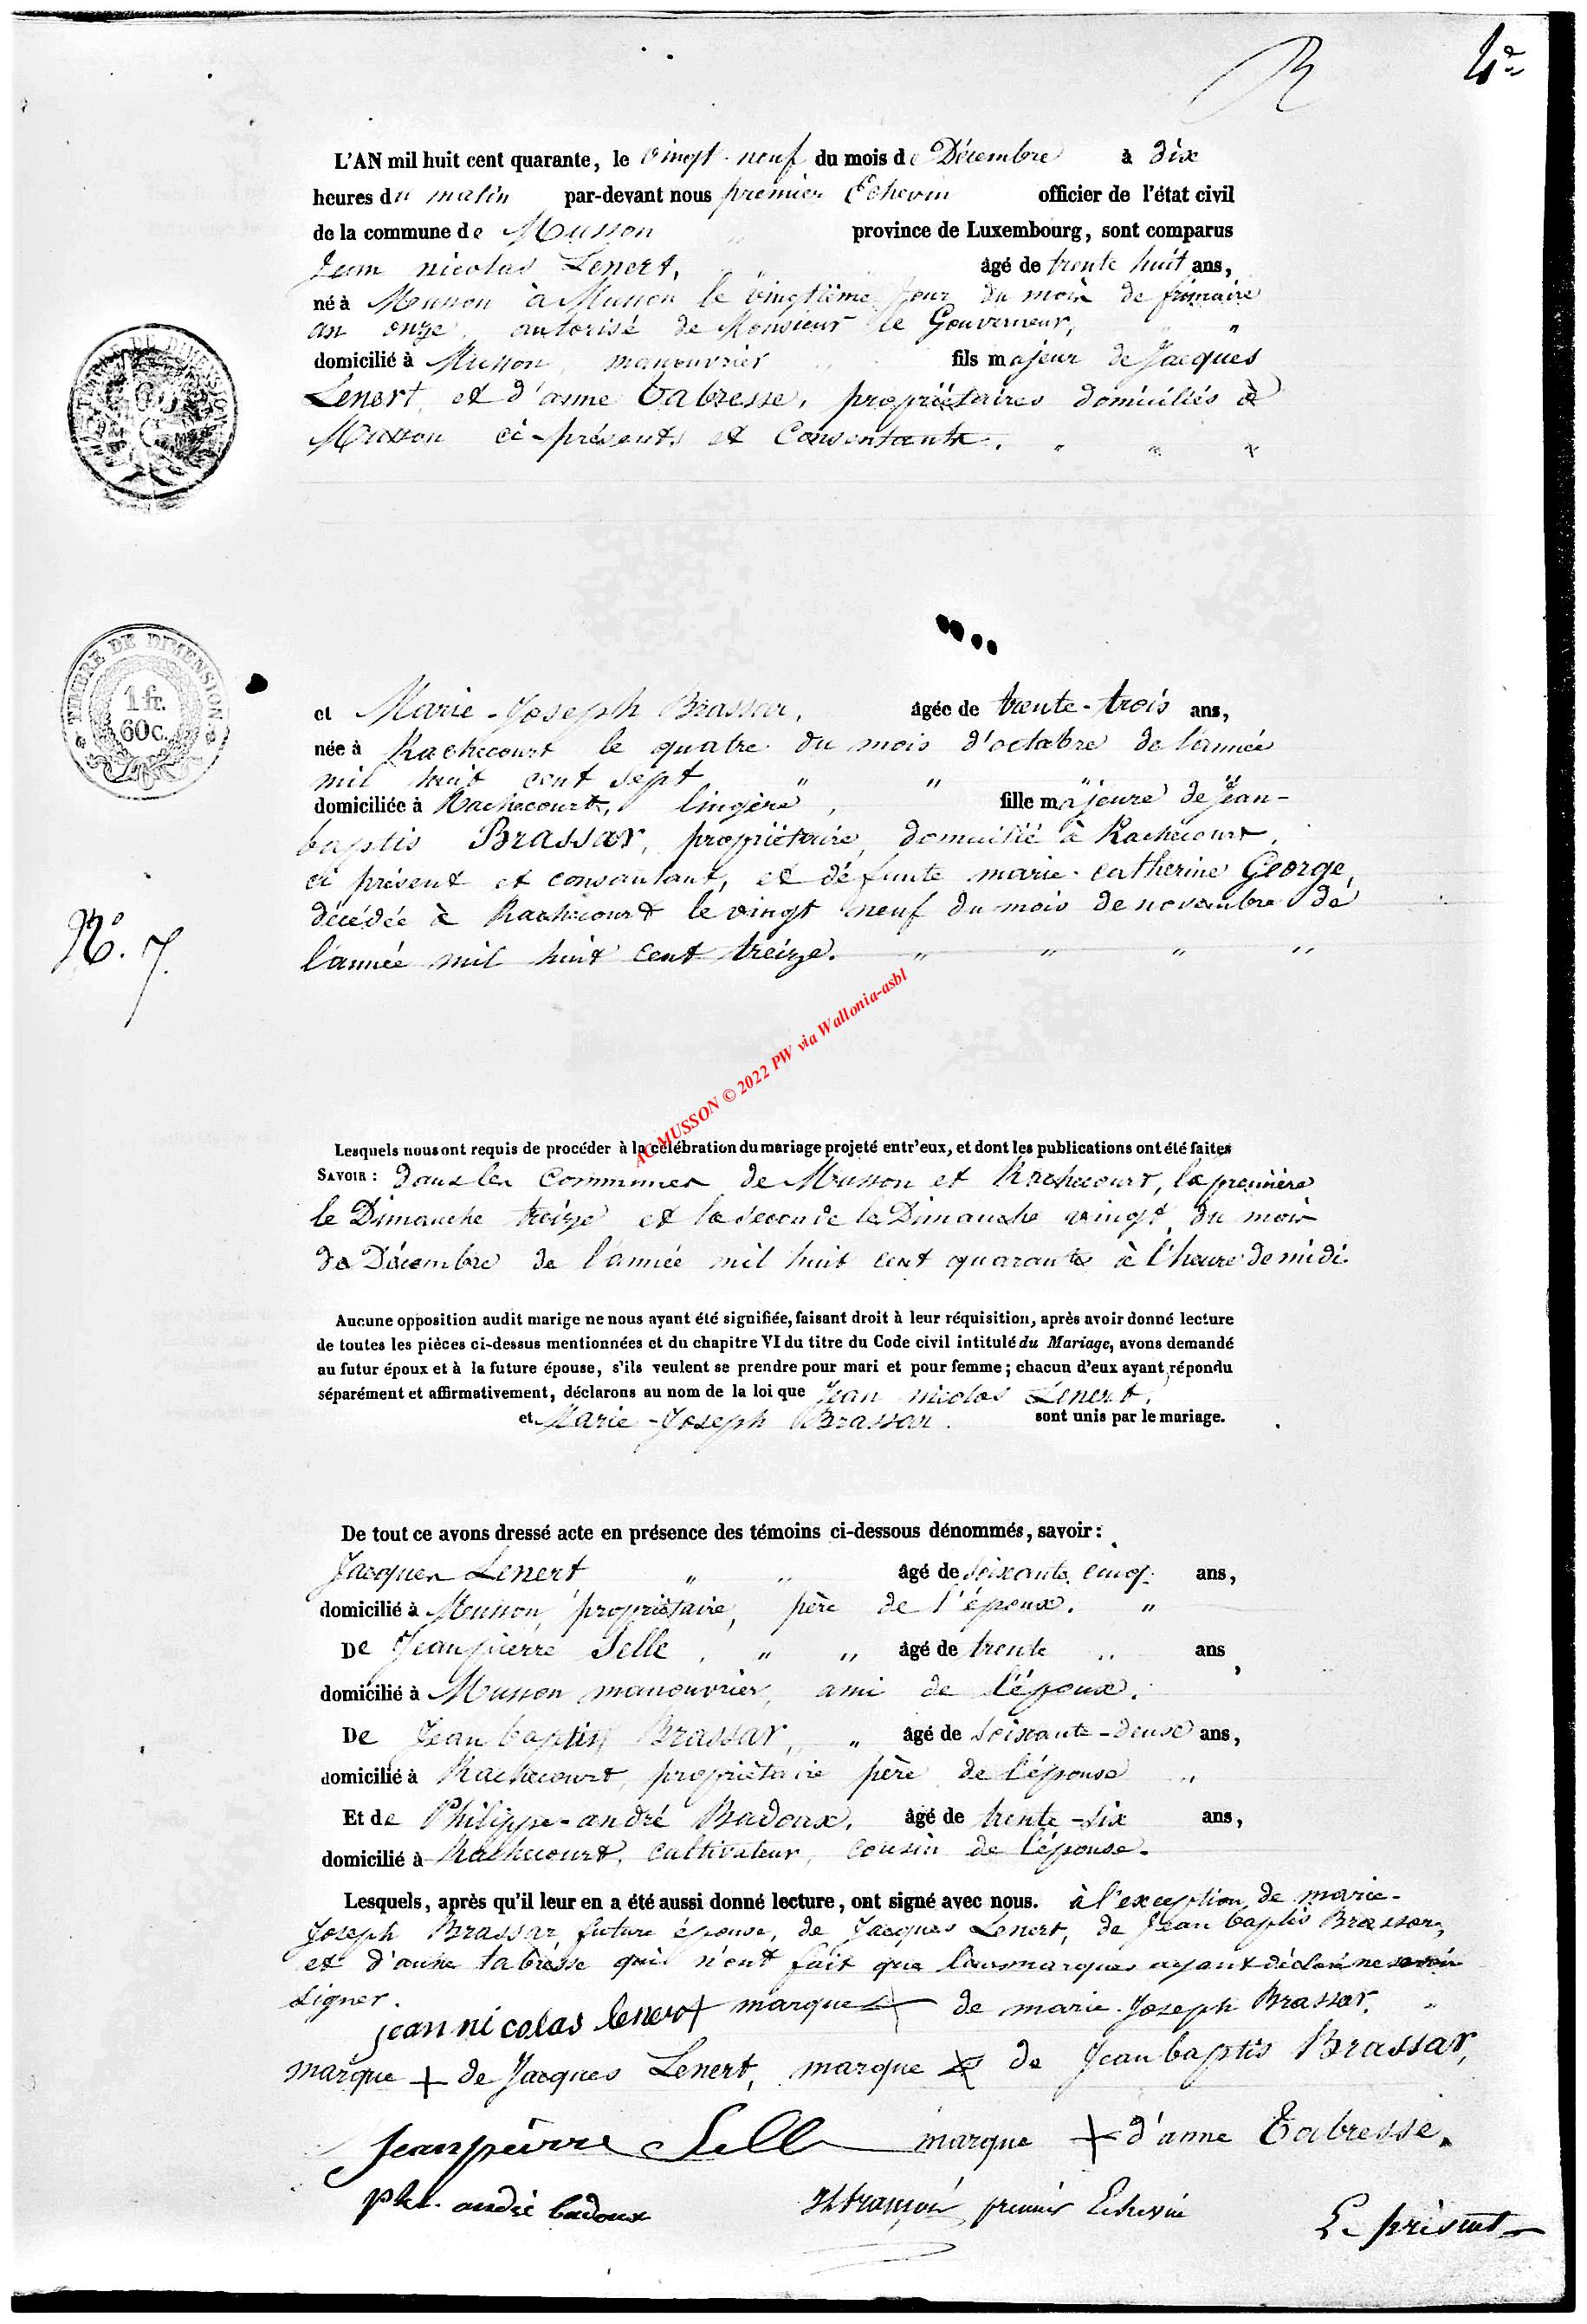 L'AN mil huit cent quarante, le vingt-neuf du mois de Décembre à dix
heures du matin par-devant nous premier Echevin officier de l'état civil
de la commune de Musson province de Luxembourg, sont comparus
Jean nicolas Lenert, âgé de trente huit ans,
né à Musson à Musson le vingtième jour du mois de frimaire
an onze, autorisé de Monsieur le Gouverneur, "
domicilié à Musson, manouvrier fils majeur de Jacques
Lenert, et d'anne Tabresse, propriétaires domiciliés à
Musson ci-présents et Consentants. " " "
TIMBRE DE DIMENSION
1 fr.
60 c.
et Marie-Joseph Brassar, âgée de trente-trois ans,
née à Rachecourt le quatre du mois d'octobre de l'année
mil huit cent sept " " "
domiciliée à Rachecourt, lingère, fille majeure de Jean-
baptis Brassar, propriétaire, domicilié à Rachecourt,
ci présent et consentant, et défunte marie-catherine George,
décédée à Rachecourt le vingt neuf du mois de novembre de
l'année mil huit cent treize. " " " "
No. 7.
AC MUSSON © 2022 PW via Wallonia-asbl
Lesquels nous ont requis de procéder à la célébration du mariage projeté entr'eux, et dont les publications ont été faites
SAVOIR : dans les Communes de Musson et Rachecourt, la première
le Dimanche treize et la seconde le Dimanche vingt du mois
de Décembre de l'année mil huit cent quarante à l'heure de midi.
Aucune opposition audit marige ne nous ayant été signifiée, faisant droit à leur réquisition, après avoir donné lecture
de toutes les pièces ci-dessus mentionnées et du chapitre VI du titre du Code civil intitulé du Mariage, avons demandé
au futur époux et à la future épouse, s'ils veulent se prendre pour mari et pour femme ; chacun d'eux ayant répondu
séparément et affirmativement, déclarons au nom de la loi que Jean nicolas Lenert,
et Marie-Joseph Brassar. sont unis par le mariage.
De tout ce avons dressé acte en présence des témoins ci-dessous dénommés, savoir :
Jacques Lenert " " âgé de soixante cinq ans,
domicilié à Musson, propriétaire, père de l'époux. "
De Jeanpierre Selle, " " âgé de trente " ans,
domicilié à Musson manouvrier, ami de l'époux.
De Jean baptis Brassar, " âgé de soixante-deux ans,
domicilié à Rachecourt, propriétaire père de l'épouse "
Et de Philippe-andré Badoux, âgé de trente-six ans,
domicilié à Rachecourt, cultivateur, cousin de l'épouse.
Lesquels, après qu'il leur en a été aussi donné lecture, ont signé avec nous. à l'exception de marie-
Joseph Brassar future épouse, de Jacques Lenert, de Jean baptis Brassar,
et d'anne tabresse qui n'ont fait que leurs marques ayant déclaré ne savoir
signer.
jean nicolas lenert marque + de marie-Joseph Brassar. "
marque + de Jacques Lenert, marque + de Jean baptis Brassar,
jeanpierre Selle marque + d'anne Tabresse.
phil. andré badoux premier Echevin